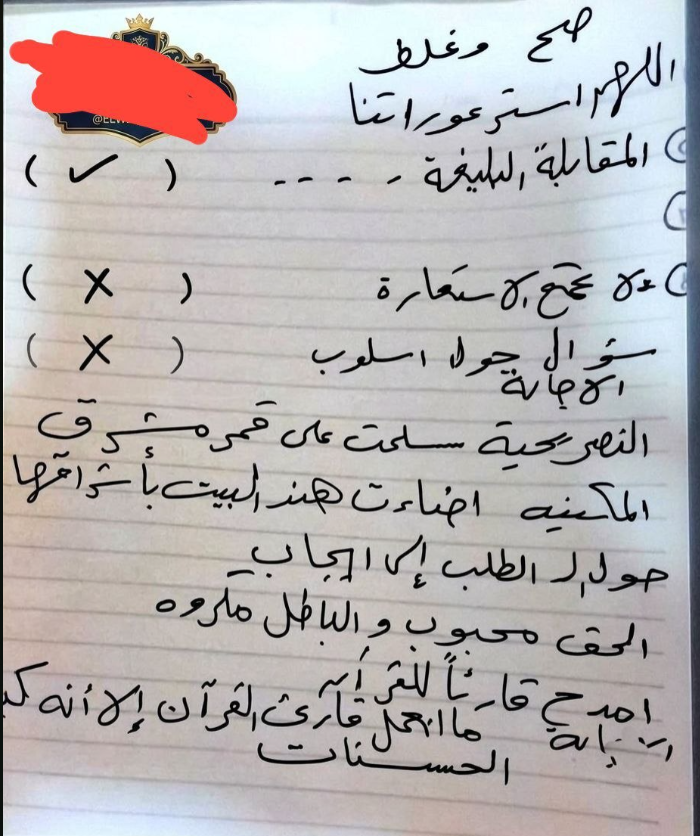 صح وغلط
اللهم استر عوراتنا
المقابلة البليغة - - - - ( ✓ )
لا تجتمع الاستعارة ( X )
سؤال حول اسلوب ( X )
الاجابة
التصريحية سلمت على قمر مشرق
المكنيه اضاءت هند البيت بأشراقها
حول الطلب إلى ايجاب
الحق محبوب و الباطل مكروه
امدح قارئاً للقرآن
ما اجمل قارئ القرآن إلا أنه
الحسنات
@ELW